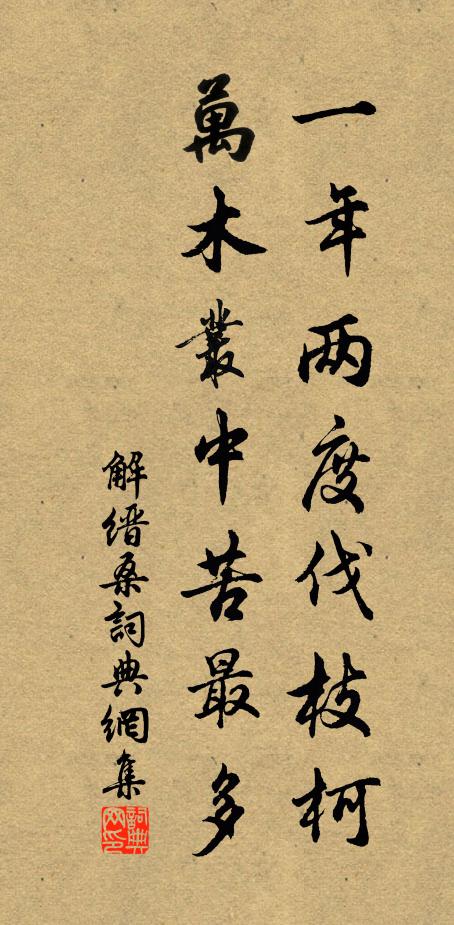 一年两度伐枝柯
萬木叢中苦最多
解缙桑詞典網集
詞典网印